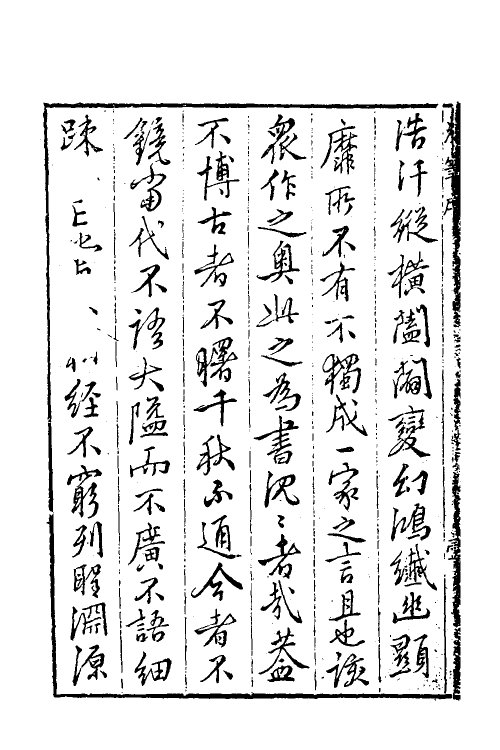 浩汗縱橫闔闢變幻鴻纖幽顯
靡所不有不獨成一家之言且也該
眾作之奧此之為書沉沉者哉蓋
不博古者不曙千秋不通今者不
鏡當代不語大隘而不廣不語細
疎經不窮列睚淵源